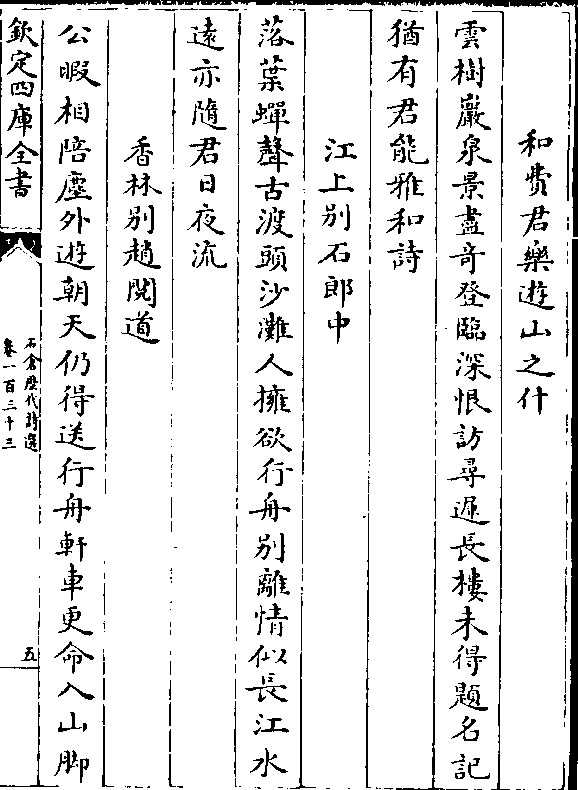 和費君樂遊山之什
雲樹巖泉景盡竒登臨深恨訪尋遲長樓未得題名記
猶有君能雅和詩
江上別石郎中
落葉蟬聲古渡頭沙灘人擁欲行舟別離情似長江水
逺亦隨君日夜流
香林別趙閱道
公暇相陪塵外遊朝天仍得送行舟軒車更命入山脚
欽定四庫全書
石倉歷代詩選
卷一百三十三
五